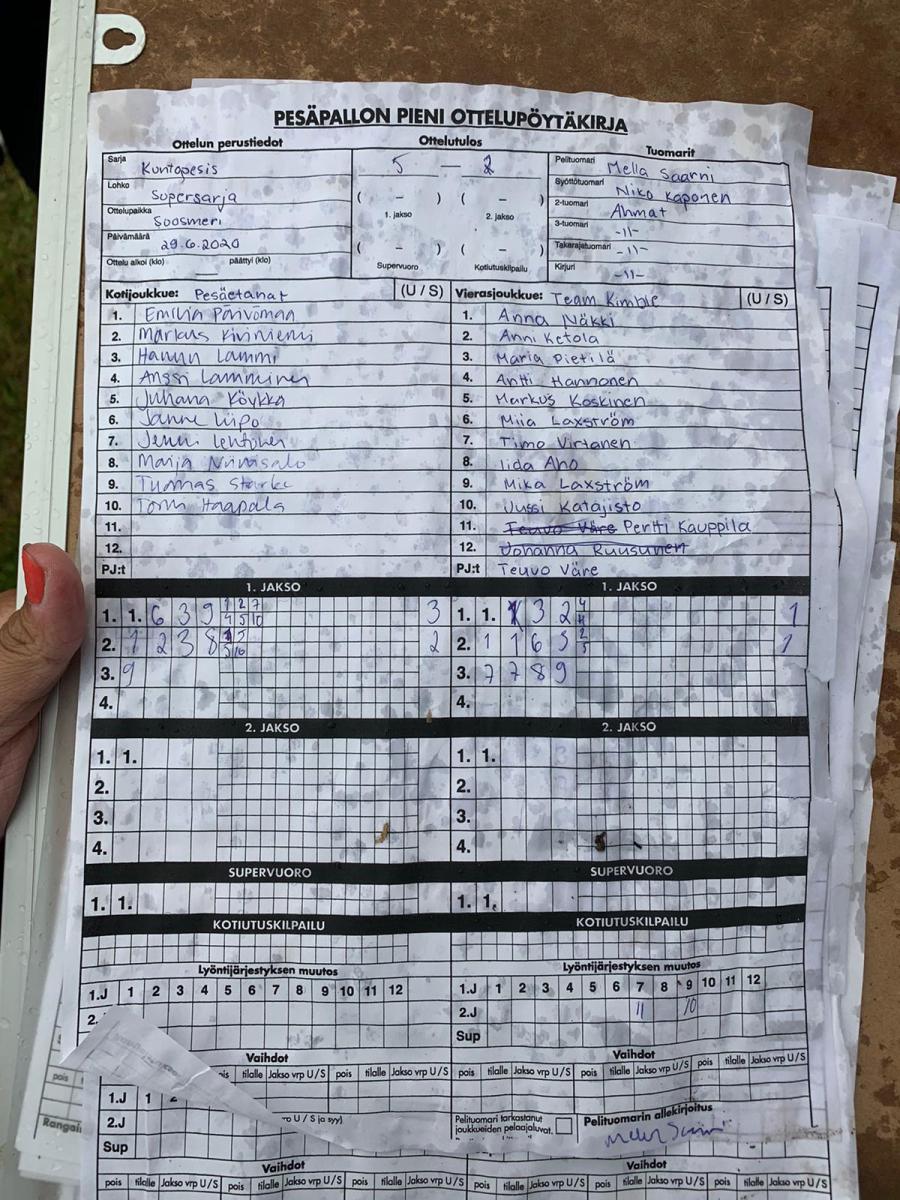 PESÄPALLON PIENI OTTELUPÖYTÄKIRJA
Ottelun perustiedot
Sarja Kuntopesis
Lohko Supersarja
Ottelupaikka Soosmeri
Päivämäärä 29.6.2020
Ottelu alkoi (klo) — päättyi (klo)
Ottelutulos
5 — 2
( – ) ( – )
1. jakso 2. jakso
( – ) ( – )
Supervuoro Kotiutuskilpailu
Tuomarit
Pelituomari Mella Saarni
Syöttötuomari Niko Kaponen
2-tuomari Ahmat
3-tuomari -11-
Takarajatuomari -11-
Kirjuri -11-
Kotijoukkue: Pesäetanat (U / S)
1. Emilia Päivömaa
2. Markus Kiviniemi
3. Hannu Lammi
4. Anssi Lamminen
5. Juhana Köykkä
6. Janne Liipo
7. Jenni Lehtonen
8. Marja Niinisalo
9. Tuomas Starke
10. Tomi Haapala
11.
12.
PJ:t
Vierasjoukkue: Team Kimble (U / S)
1. Anna Näkki
2. Anni Ketola
3. Maria Pietilä
4. Antti Hannonen
5. Markus Koskinen
6. Miia Laxström
7. Timo Virtanen
8. Iida Aho
9. Mika Laxström
10. Jussi Katajisto
11. Teuvo Väre Pertti Kauppila
12. Johanna Ruusunen
PJ:t Teuvo Väre
1. JAKSO
1. 1. 6 3 9 1 2 7 3
4 5 10
2. 1 2 3 8 5 2
5 10
3. 9
4.
1. JAKSO
1. 1. 3 2 4 1
4
2. 1 1 6 5 2 1
5
3. 7 7 8 9
4.
2. JAKSO
1. 1.
2.
3.
4.
2. JAKSO
1. 1.
2.
3.
4.
SUPERVUORO
1. 1.
SUPERVUORO
1. 1.
KOTIUTUSKILPAILU
KOTIUTUSKILPAILU
Lyöntijärjestyksen muutos
1.J 1 2 3 4 5 6 7 8 9 10 11 12
2.
Lyöntijärjestyksen muutos
1.J 1 2 3 4 5 6 7 8 9 10 11 12
2.J 11 10
Sup
Vaihdot
pois tilalle Jakso vrp U/S pois tilalle Jakso vrp U/S
Vaihdot
pois tilalle Jakso vrp U/S pois tilalle Jakso vrp U/S
1.J 1 2
2.J
Sup
U / S ja syy)
Pelituomari tarkastanut
joukkueiden pelaajaluvat.
Pelituomarin allekirjoitus
Vaihdot
pois tilalle Jakso vrp U/S pois tilalle Jakso vrp U/S
Vaihdot
pois tilalle Jakso vrp U/S pois tilalle Jakso vrp U/S
pois